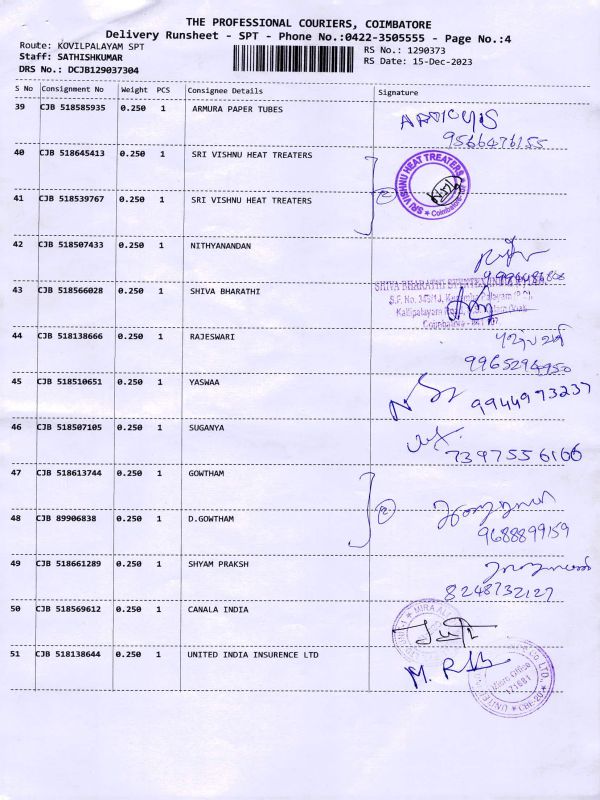 THE PROFESSIONAL COURIERS, COIMBATORE
Delivery Runsheet - SPT - Phone No.:0422-3505555 - Page No.:4
Route: KOVILPALAYAM SPT
RS No.: 1290373
Staff: SATHISHKUMAR
RS Date: 15-Dec-2023
DRS No.: DCJB129037304
S No Consignment No Weight PCS Consignee Details Signature
39 CJB 518585935 0.250 1 ARMURA PAPER TUBES
9566476155
40 CJB 518645413 0.250 1 SRI VISHNU HEAT TREATERS
SRI VISHNU HEAT TREATERS
Coimbatore
2
41 CJB 518539767 0.250 1 SRI VISHNU HEAT TREATERS
42 CJB 518507433 0.250 1 NITHYANANDAN
43 CJB 518566028 0.250 1 SHIVA BHARATHI
SHIVA BHARATHI
44 CJB 518138666 0.250 1 RAJESWARI
9965294950
45 CJB 518510651 0.250 1 YASWAA
9944973237
46 CJB 518507105 0.250 1 SUGANYA
7397556166
47 CJB 518613744 0.250 1 GOWTHAM
2
48 CJB 89906838 0.250 1 D.GOWTHAM
9688899159
49 CJB 518661289 0.250 1 SHYAM PRAKSH
8248732127
50 CJB 518569612 0.250 1 CANALA INDIA
51 CJB 518138644 0.250 1 UNITED INDIA INSURENCE LTD
Micro Office
171681
CBE-20